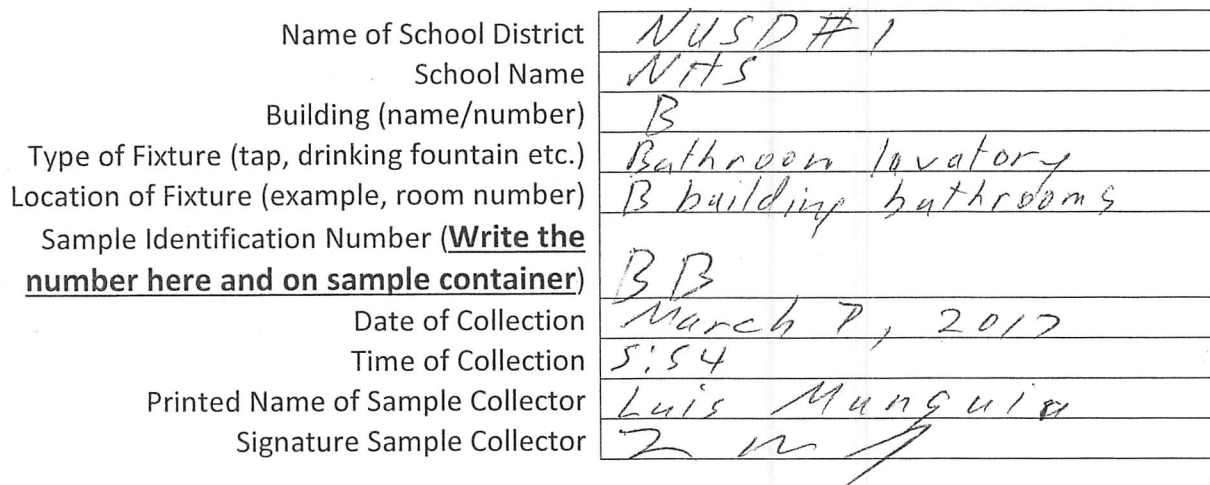 Name of School District NUSD#1
School Name NHS
Building (name/number) B
Type of Fixture (tap, drinking fountain etc.) Bathroom lavatory
Location of Fixture (example, room number) B building bathrooms
Sample Identification Number (Write the
number here and on sample container) BB
Date of Collection March 7, 2017
Time of Collection 5:54
Printed Name of Sample Collector Luis Munguia
Signature Sample Collector